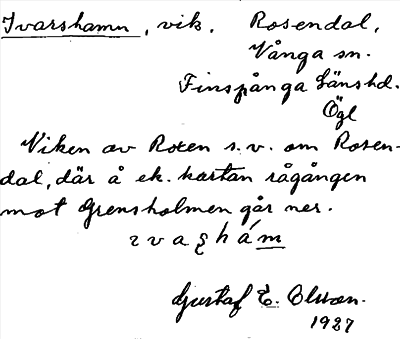 Ivarshamn, vik. Rosendal,
Vånga sn.
Finspånga Länshd.
Ögl
Viken av Roxen s.v. om Rosen-
dal, där å ek. kartan rågången
mot Grensholmen går ner.
ɿvaʂhám
Gustaf E. Olsson.
1927